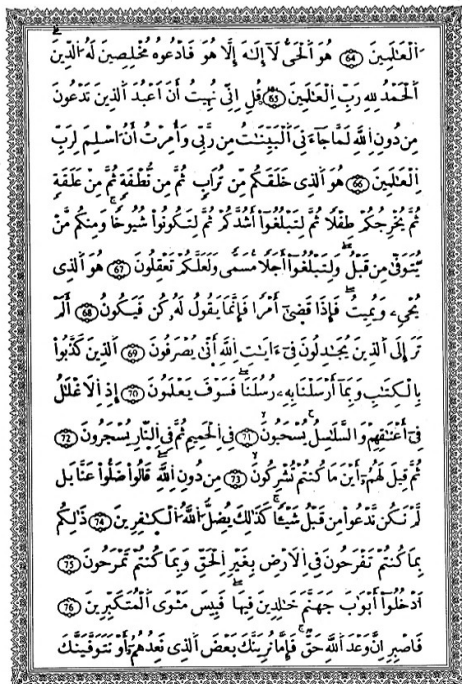 اَلْعَٰلَمِينَ 64 هُوَ اَلْحَىُّ لَآ إِلَٰهَ إِلَّا هُوَ فَادْعُوهُ مُخْلِصِينَ لَهُ اُلدِّينَ
اَلْحَمْدُ لِلهِ رَبِّ اِلْعَٰلَمِينَ 65 قُلِ اِنِّى نُهِيتُ أَنَ اَعْبُدَ اَلذِينَ تَدْعُونَ
مِن دُونِ اِللَّهِ لَمَّا جَآءَنِىَ اَلْبَيِّنَٰتُ مِن رَّبِّى وَأُمِرْتُ أَنُ اسْلِمَ لِرَبِّ
اِلْعَٰلَمِينَ 66 هُوَ اَلذِى خَلَقَكُم مِّن تُرَابٖ ثُمَّ مِن نُّطْفَةٖ ثُمَّ مِنْ عَلَقَةٖ
ثُمَّ يُخْرِجُكُمْ طِفْلًا ثُمَّ لِتَبْلُغُوٓاْ أَشُدَّكُمْ ثُمَّ لِتَكُونُواْ شُيُوخًا وَمِنكُم مَّنْ
يُّتَوَفّٰى مِن قَبْلُ وَلِتَبْلُغُوٓاْ أَجَلًا مُّسَمًّى وَلَعَلَّكُمْ تَعْقِلُونَ 67 هُوَ اَلذِى
يُحْىِۦ وَيُمِيتُ فَإِذَا قَضٰىٓ أَمْرًا فَإِنَّمَا يَقُولُ لَهُۥ كُن فَيَكُونُ 68 أَلَمْ
تَرَ إِلَى اَلذِينَ يُجَٰدِلُونَ فِىٓ ءَايَٰتِ اِللَّهِ أَنّٰى يُصْرَفُونَ 69 اَلذِينَ كَذَّبُواْ
بِالْكِتَٰبِ وَبِمَآ أَرْسَلْنَا بِهِۦ رُسُلَنَا فَسَوْفَ يَعْلَمُونَ 70 إِذِ اِلَاغْلَٰلُ
فِىٓ أَعْنَٰقِهِمْ وَالسَّلَٰسِلُ يُسْحَبُونَ 71 فِى اِلْحَمِيمِ ثُمَّ فِى اِلنّ۪ارِ يُسْجَرُونَ 72
ثُمَّ قِيلَ لَهُمُۥٓ أَيْنَ مَا كُنتُمْ تُشْرِكُونَ 73 مِن دُونِ اِللَّهِ قَالُواْ ضَلُّواْ عَنَّا بَل
لَّمْ نَكُن نَّدْعُواْ مِن قَبْلُ شَيْـًٔا كَذَٰلِكَ يُضِلُّ اُللَّهُ اُلْكٰ۪فِرِينَ 74 ذَٰلِكُم
بِمَا كُنتُمْ تَفْرَحُونَ فِى اِلَارْضِ بِغَيْرِ اِلْحَقِّ وَبِمَا كُنتُمْ تَمْرَحُونَ 75
اَدْخُلُوٓاْ أَبْوَٰبَ جَهَنَّمَ خَٰلِدِينَ فِيهَا فَبِيسَ مَثْوَى اَلْمُتَكَبِّرِينَ 76
فَاصْبِرِ اِنَّ وَعْدَ اَللَّهِ حَقٌّ فَإِمَّا نُرِيَنَّكَ بَعْضَ اَلذِى نَعِدُهُمُۥٓ أَوْ نَتَوَفَّيَنَّكَ